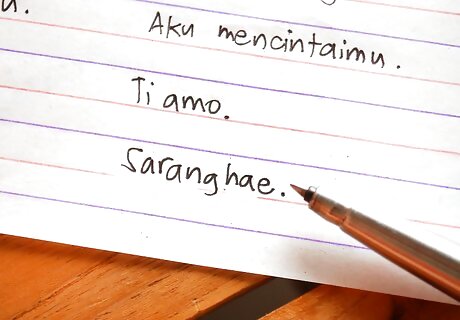 u.
Aku mencintaimu.
Ti amo.
Saranghae.